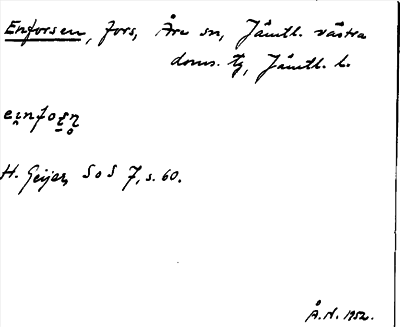 Enforsen, fors, Åre sn, Jämtl. västra
doms. tg, Jämtl. l.
e̯ınfoʂn̥
H. Geijer, SoS 7, s. 60.
Å.N. 1952.